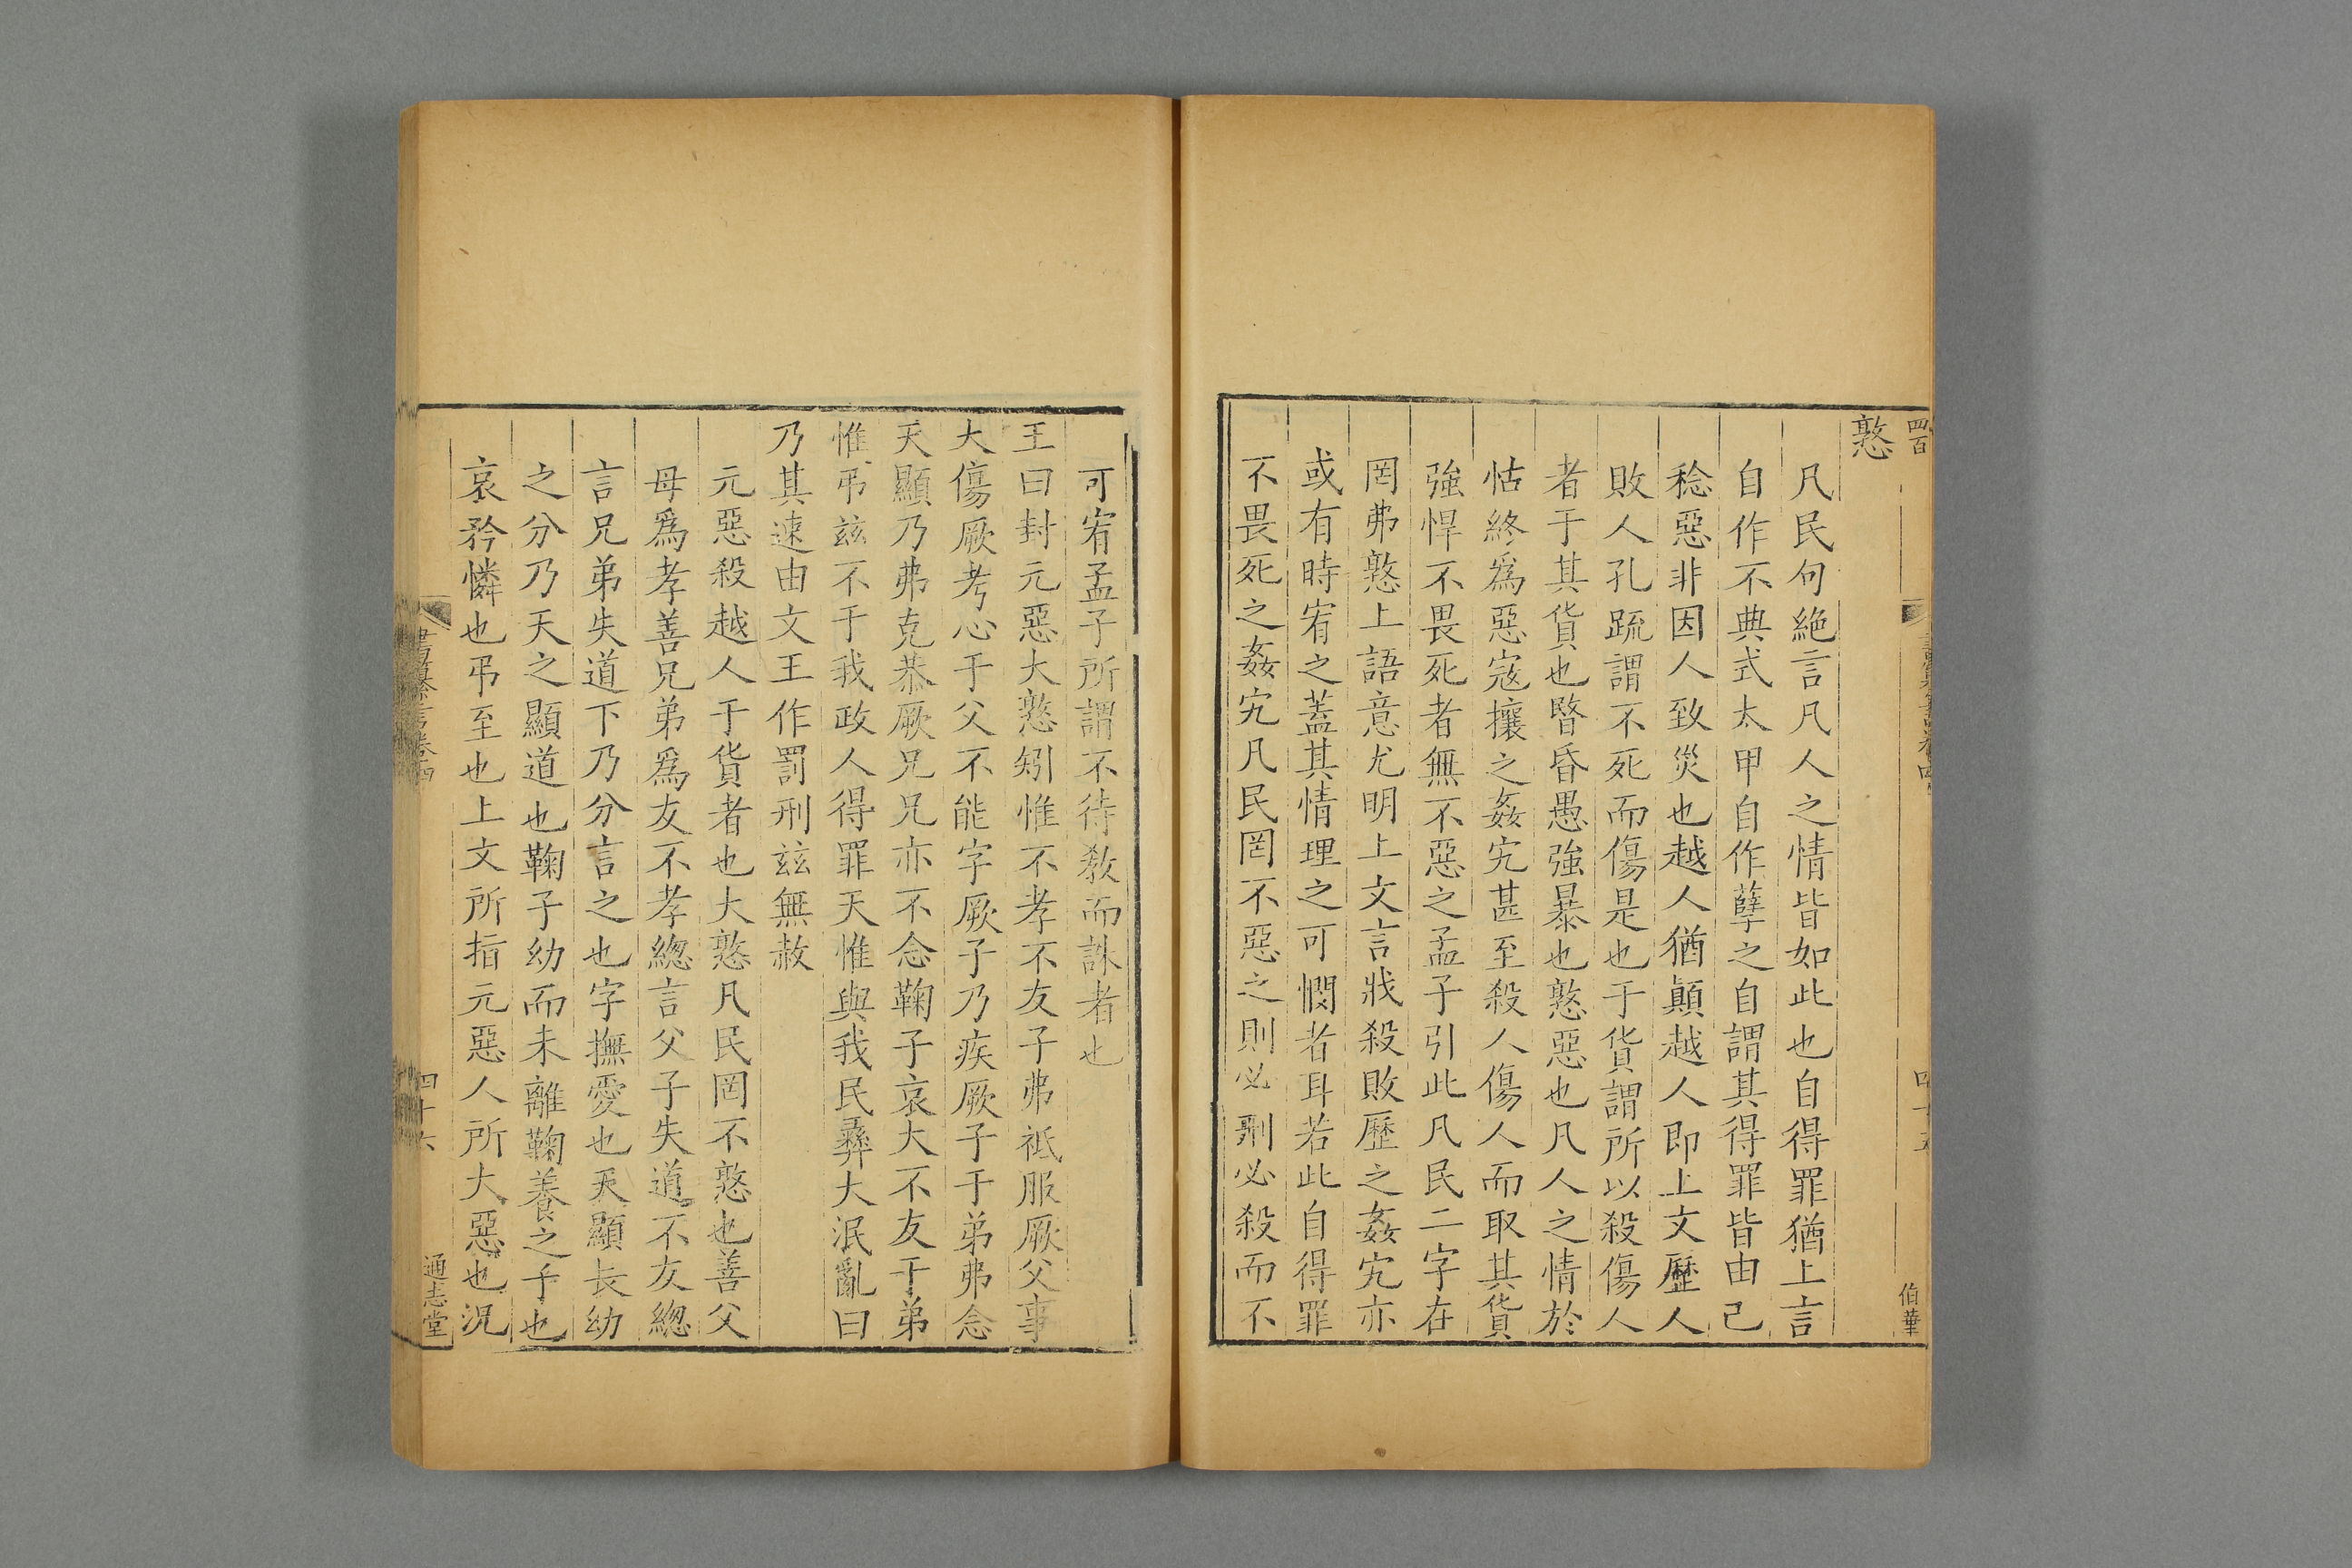 憝
凡民句絶言凡人之情皆如此也自得罪猶上言
自作不典式太甲自作孽之自謂其得罪皆由己
稔惡非因人致災也越人猶顚越人即上文歷人
敗人孔疏謂不死而傷是也于貨謂所以殺傷人
者于其貨也暋昏愚強暴也憝惡也凡人之情於
怙終爲惡寇攘之姦宄甚至殺人傷人而取其貨
強悍不畏死者無不惡之孟子引此凡民二字在
罔弗憝上語意尤明上文言戕殺敗歷之姦宄亦
或有時宥之蓋其情理之可憫者耳若此自得罪
不畏死之姦宄凡民罔不惡之則必刑必殺而不
四百
伯華
可宥孟子所謂不待敎而誅者也
王曰封元惡大憝矧惟不孝不友子弗祗服厥父事
大傷厥考心于父不能字厥子乃疾厥子于弟弗念
天顯乃弗克恭厥兄兄亦不念鞠子哀大不友于弟
惟弔兹不于我政人得罪天惟與我民彝大泯亂曰
乃其速由文王作罰刑兹無赦
元惡殺越人于貨者也大憝凡民罔不憝也善父
母爲孝善兄弟爲友不孝總言父子失道不友總
言兄弟失道下乃分言之也字撫愛也天顯長幼
之分乃天之顯道也鞠子幼而未離鞠養之子也
哀矜憐也弔至也上文所指元惡人所大惡也況
書纂言卷四
四十六
通志堂